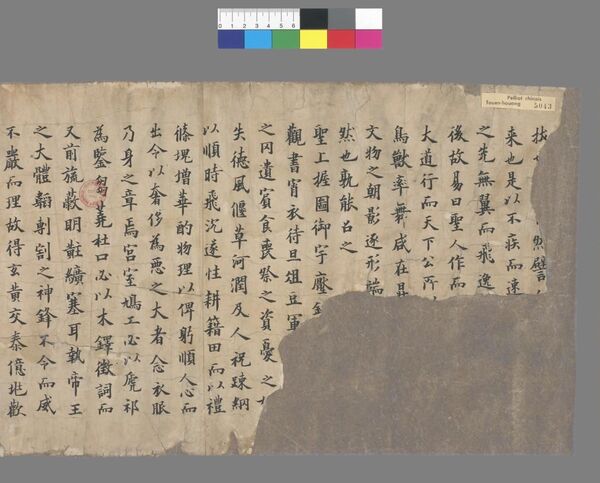 Pelliot chinois
Touen-houang 5043
來也是以不疾而速
之先無翼而飛逸
後故易曰聖人作而
大道行而天下公所
鳥獸率舞咸在
文物之朝影逐形端
然也孰能占之
聖上握圖御宇
觀書宵衣待旦俎豆軍
之囚遺賓食喪祭之資憂之
失德風偃草河潤及人祝疎網
以順時飛沉遂性耕籍田而以禮
篠增華酌物理以俾躬順人心而
出令以奢侈為惡之大者念衣服
乃身之章焉宮室鳩工必以虎祁
為鑒蒭蕘杜口必以木鐸徵詞而
又前旒蔽明黈纊塞耳執帝王
之大體韜剸割之神鋒不令而威
不嚴而理故得玄黃交泰億兆歡